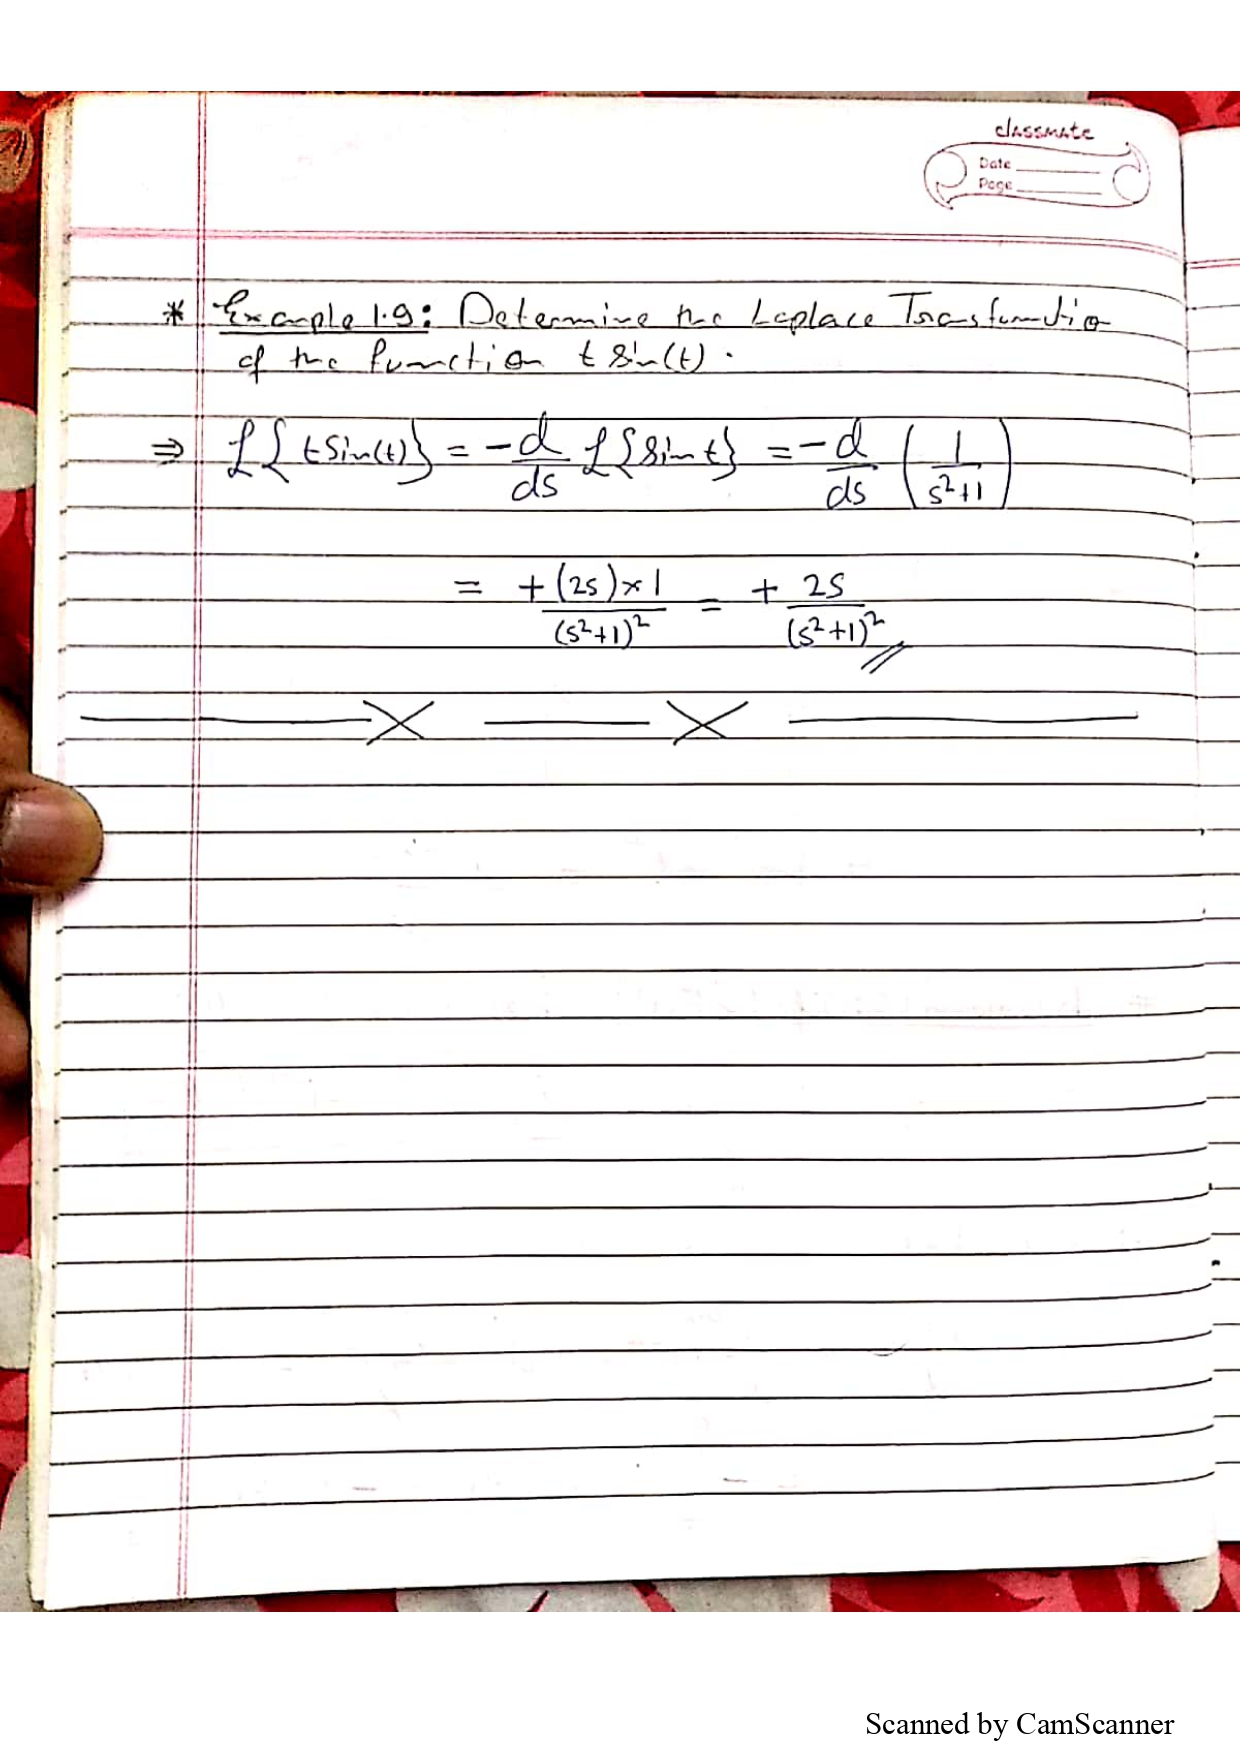 classmate
Date
Page
* Example 1.9: Determine the Laplace Transformation
of the function t sin(t).
⇒ ℒ{t sin(t)} = -d/ds ℒ{sin t} = -d/ds (1/(s²+1))
= +(2s)×1/(s²+1)² = + 2s/(s²+1)²
Scanned by CamScanner